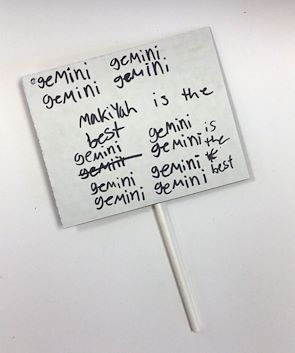 gemini gemini
gemini gemini
makiyah is the
best
gemini gemini is
gemini gemini the
gemini gemini best
gemini gemini